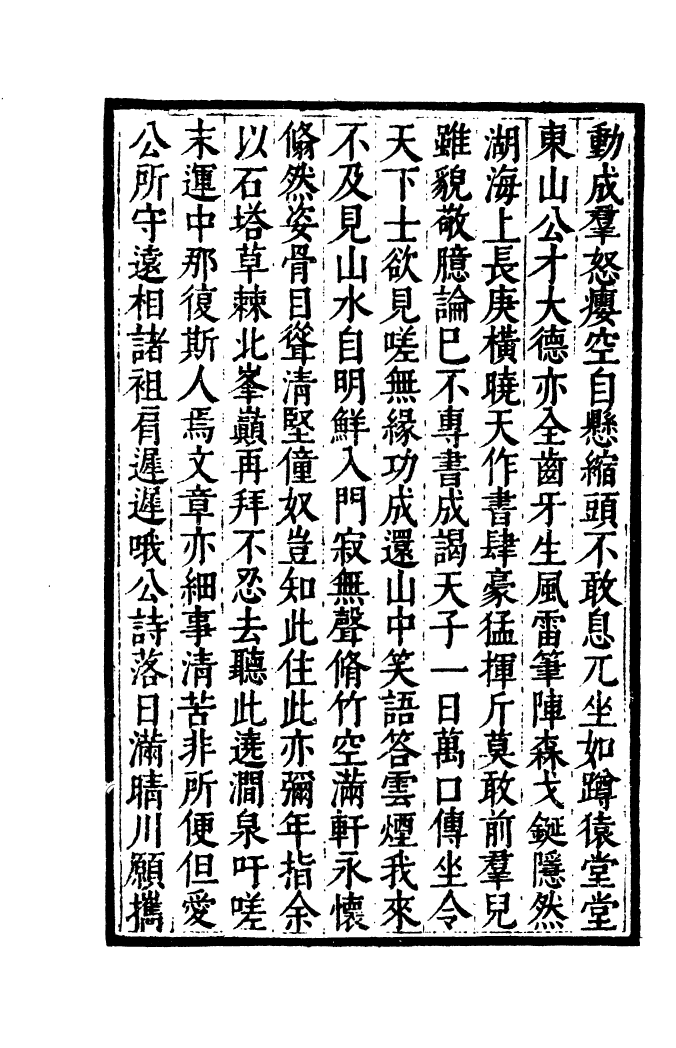 動成羣怒癭空自懸縮頭不敢息兀坐如蹲猿堂堂
東山公才大德亦全齒牙生風雷筆陣森戈鋋隱然
湖海上長庚橫曉天作書肆豪猛揮斤莫敢前羣兒
雖貌敬臆論已不專書成謁天子一日萬口傳坐令
天下士欲見嗟無緣功成還山中笑語答雲煙我來
不及見山水自明鮮入門寂無聲脩竹空滿軒永懷
翛然姿骨目聳清堅僮奴豈知此住此亦彌年指余
以石塔草棘北峯巔再拜不忍去聽此遶澗泉吁嗟
末運中那復斯人焉文章亦細事清苦非所便但愛
公所守遠相諸祖肩遲遲哦公詩落日滿晴川願攜